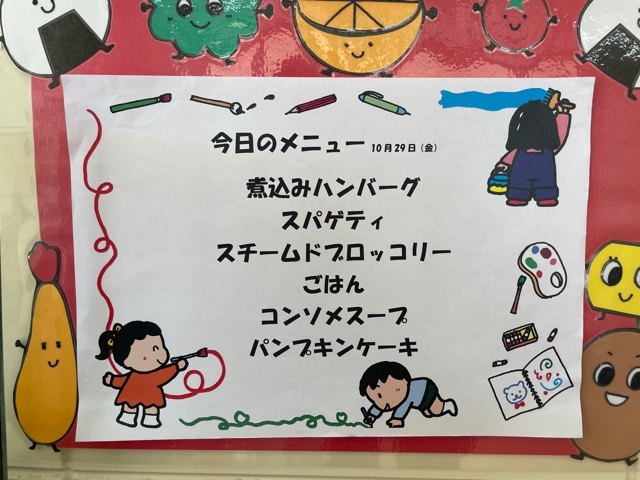 今日のメニュー 10月29日(金)
煮込みハンバーグ
スパゲティ
スチームドブロッコリー
ごはん
コンソメスープ
パンプキンケーキ